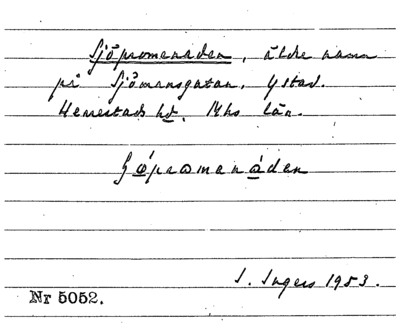 Sjöpromenaden, äldre namn
på Sjömansgatan, Ystad.
Herrestads hd, Mhs län.
Sjöpromenaden
I. Ingers 1953.
Nr 5052.